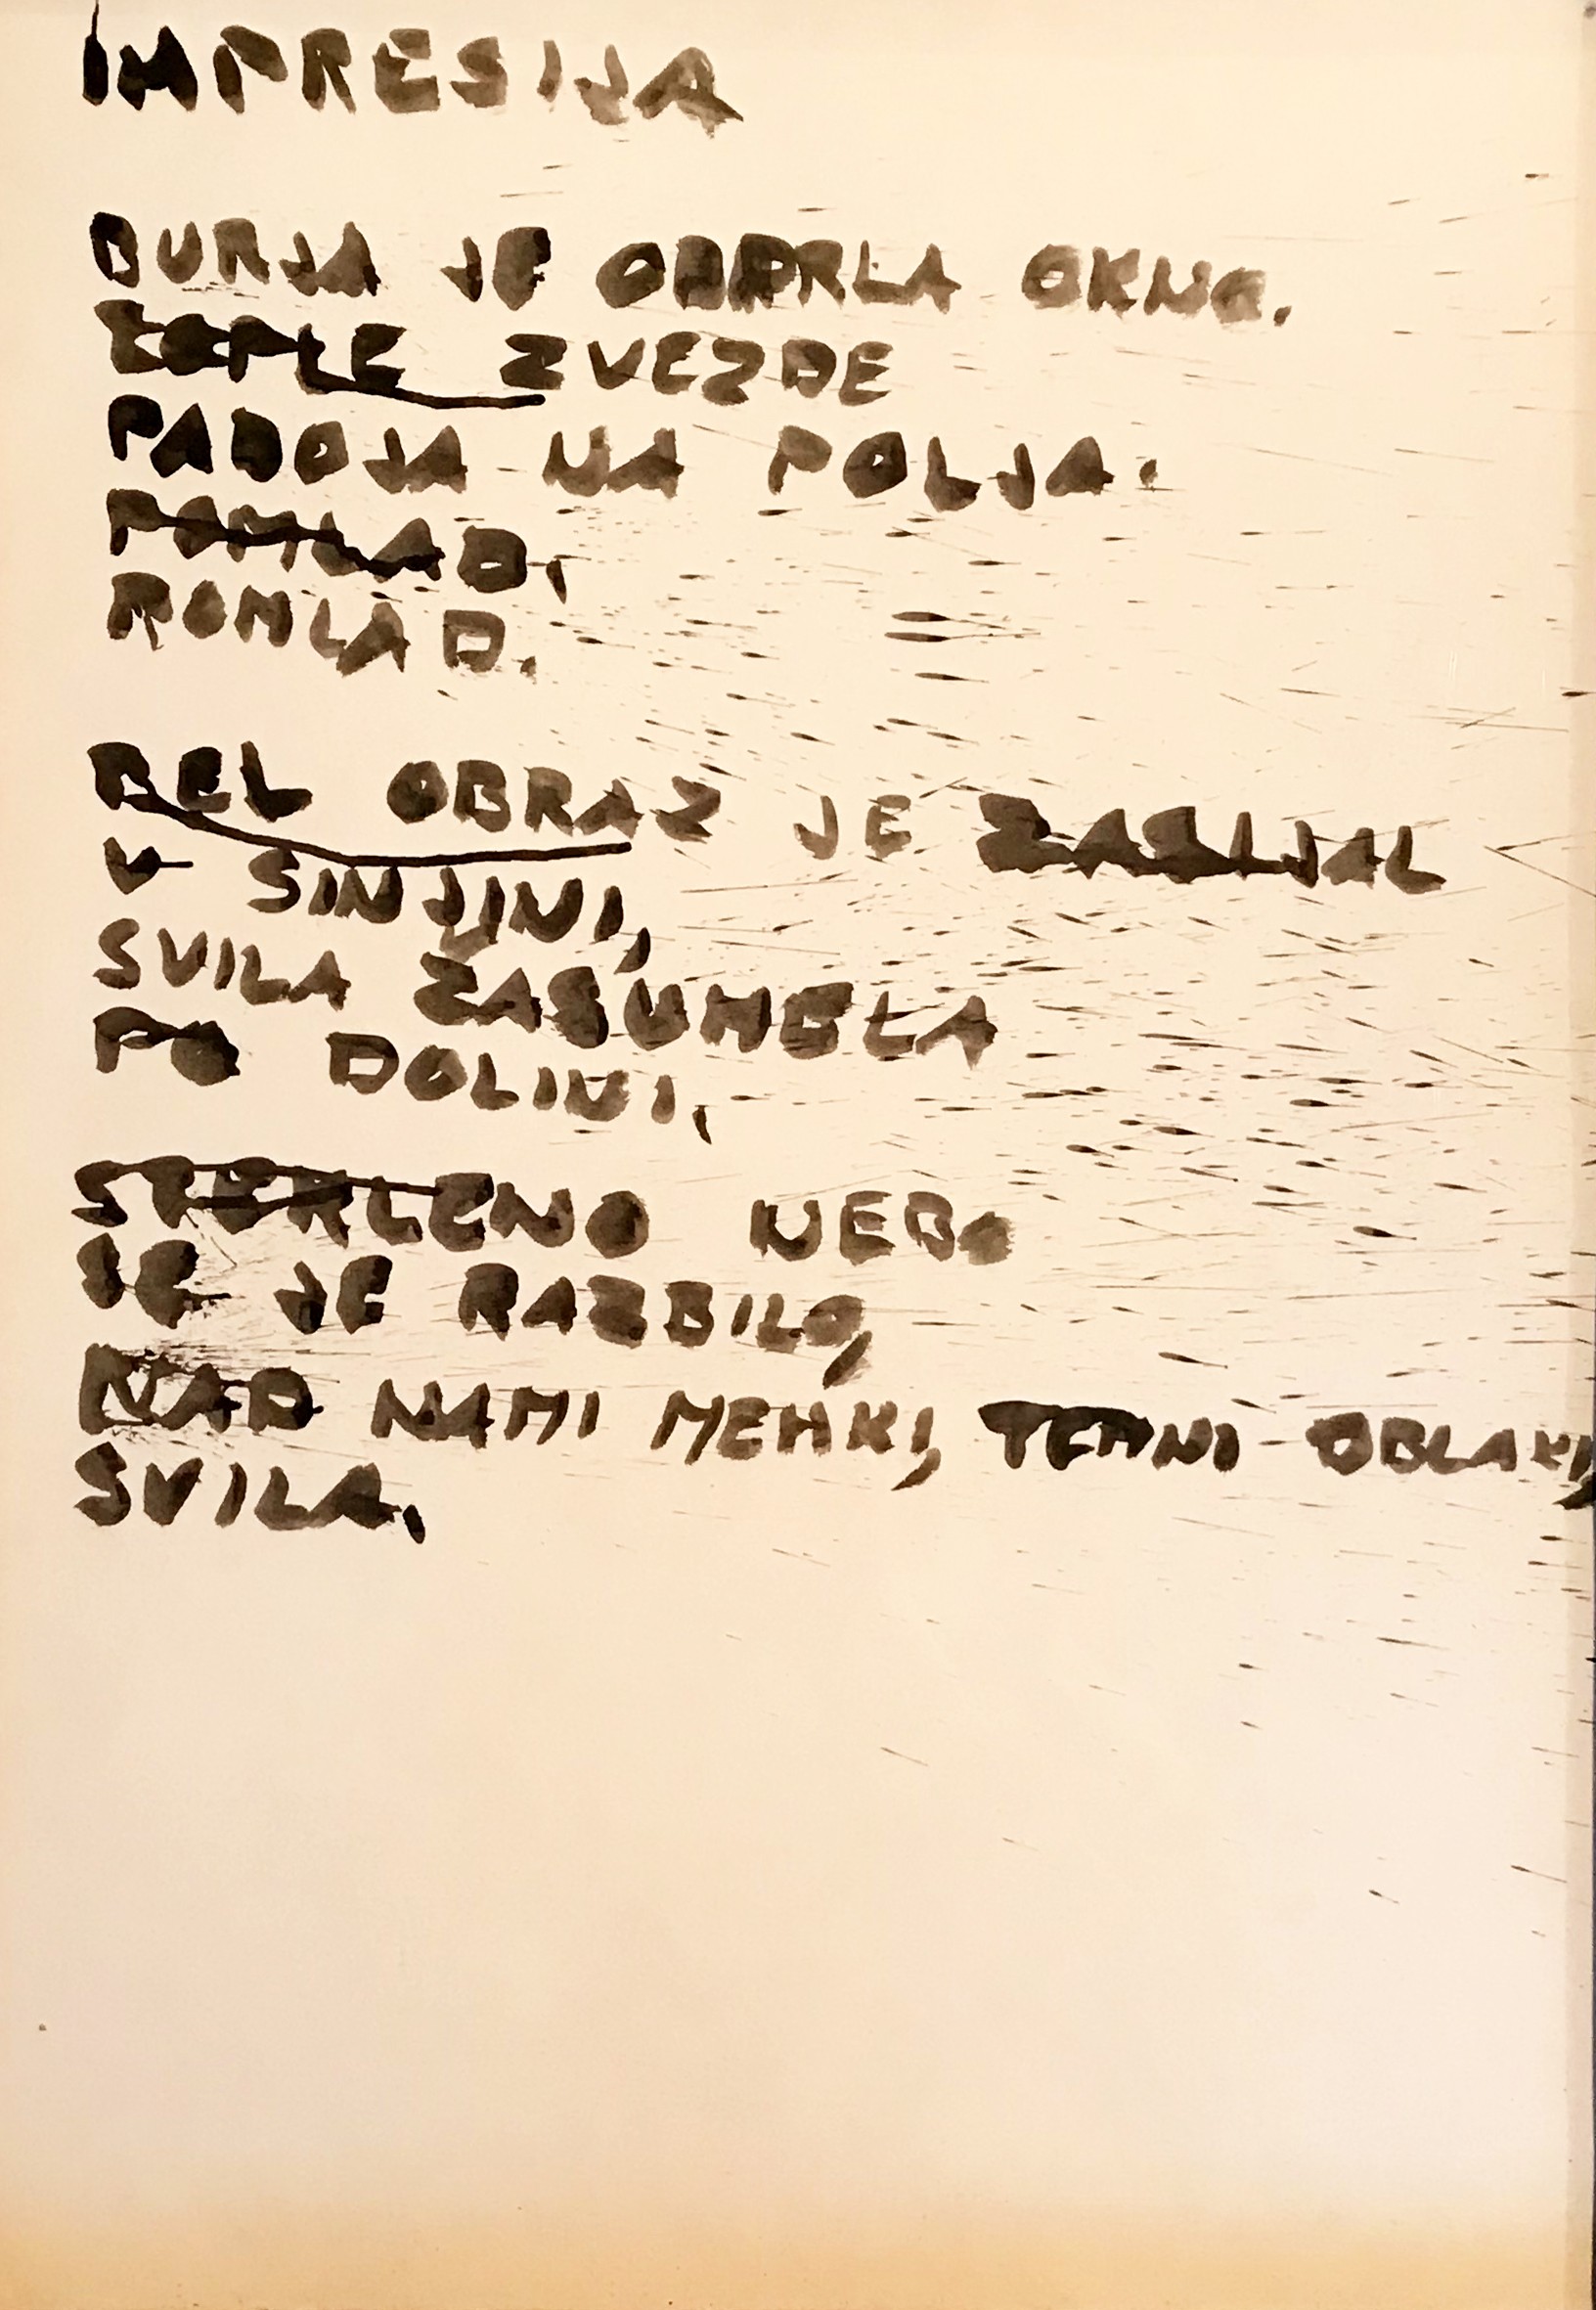 IMPRESIJA
BURJA JE ODPRLA OKNO.
TOPLE ZVEZDE
PADOJA NA POLJA.
POMLAD,
POMLAD.
BEL OBRAZ JE ZASIJAL
V SINJINI,
SVILA ZAŠUMELA
PO DOLINI,
STEKLENO NEBO
SE JE RAZBILO,
NAD NAMI MEHKI, TEMNI OBLAKI,
SVILA.